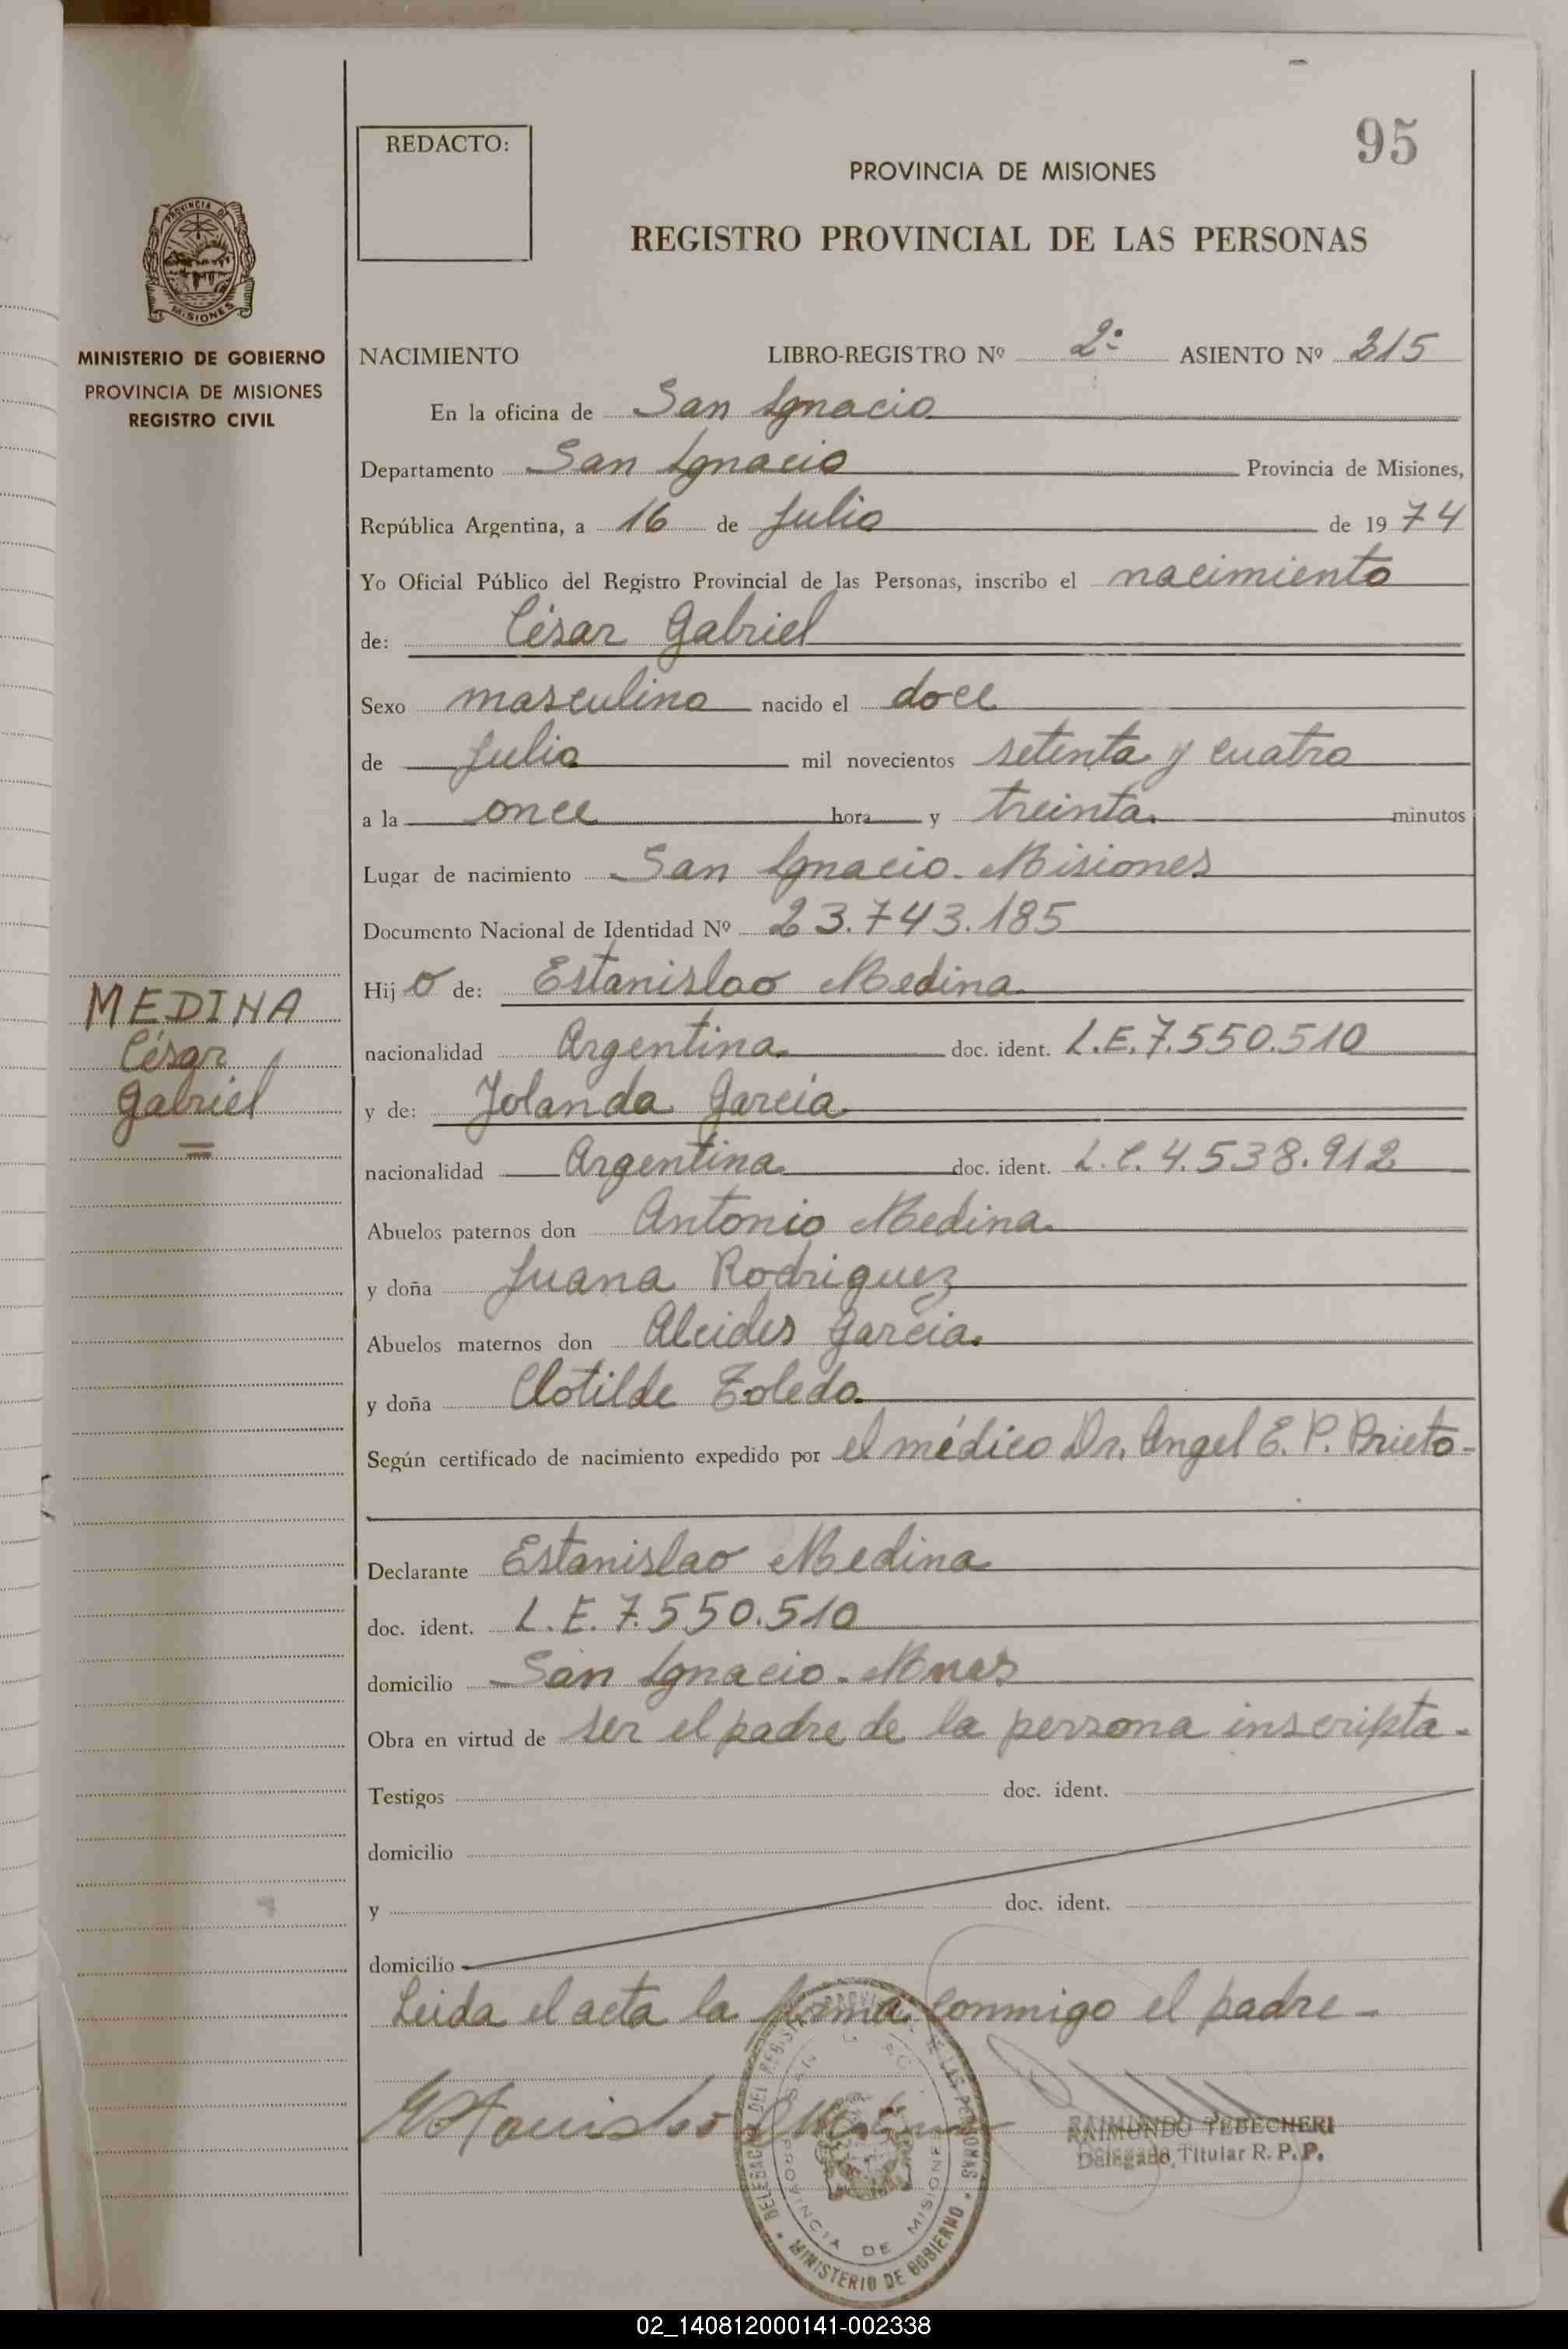 95
REDACTO:
PROVINCIA DE MISIONES
REGISTRO PROVINCIAL DE LAS PERSONAS
PROVINCIA DE
MISIONES
MINISTERIO DE GOBIERNO
PROVINCIA DE MISIONES
REGISTRO CIVIL
NACIMIENTO LIBRO-REGISTRO Nº 2º ASIENTO Nº 215
En la oficina de San Ignacio
Departamento San Ignacio Provincia de Misiones,
República Argentina, a 16 de Julio de 19 74
Yo Oficial Público del Registro Provincial de las Personas, inscribo el nacimiento
de: César Gabriel
Sexo masculino nacido el doce
de Julio mil novecientos setenta y cuatro
a la once hora y treinta. minutos
Lugar de nacimiento San Ignacio - Misiones
Documento Nacional de Identidad Nº 23.743.185
Hij o de: Estanislao Medina
MEDINA
César
Gabriel
nacionalidad Argentina doc. ident. L.E. 7.550.510
y de: Yolanda García
nacionalidad Argentina doc. ident. L.C. 4.538.912
Abuelos paternos don Antonio Medina
y doña Juana Rodriguez
Abuelos maternos don Alcides García.
y doña Clotilde Toledo
Según certificado de nacimiento expedido por el médico Dr. Angel E. P. Prieto-
Declarante Estanislao Medina
doc. ident. L.E. 7.550.510
domicilio San Ignacio - Mnes
Obra en virtud de ser el padre de la persona inscripta.
Testigos doc. ident.
domicilio
y doc. ident.
domicilio
Leida el acta la firma conmigo el padre -
Estanislao Medina
RAIMUNDO TEBECHERI
Delegado Titular R. P. P.
DELEGACION DEL REGISTRO PROVINCIAL DE LAS PERSONAS
PROVINCIA DE MISIONES
MINISTERIO DE GOBIERNO
02_140812000141-002338